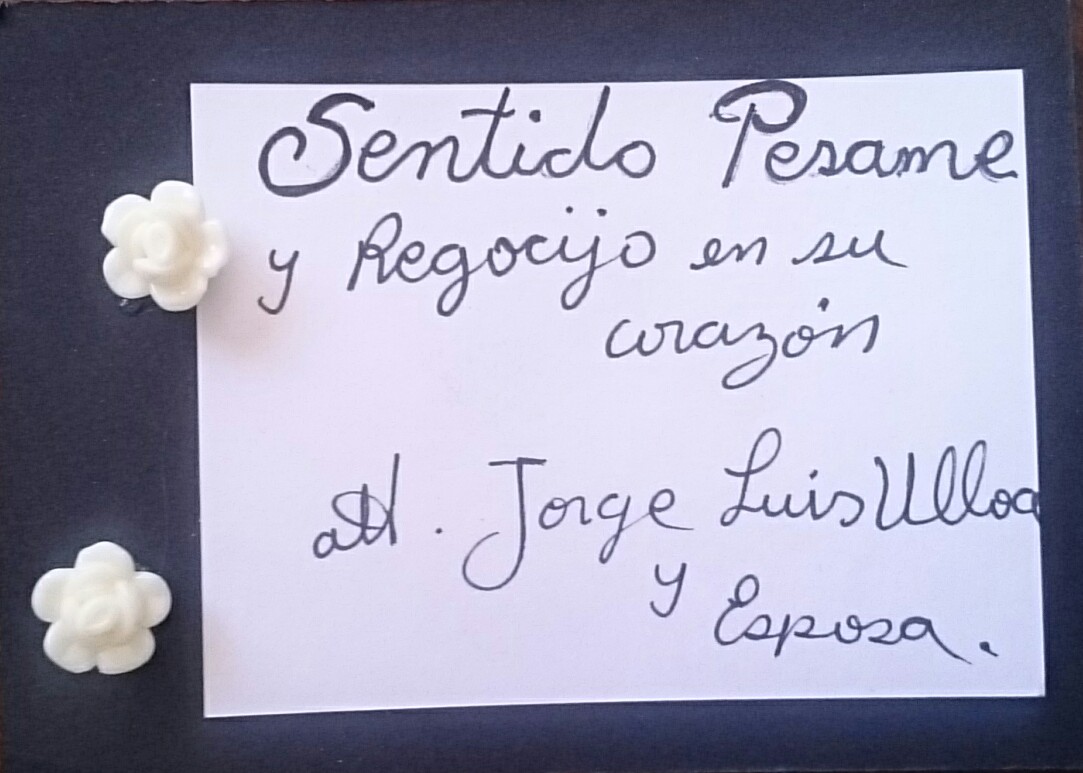 Sentido Pesame
y Regocijo en su
corazón
att. Jorge Luis Ulloa
y
Esposa.